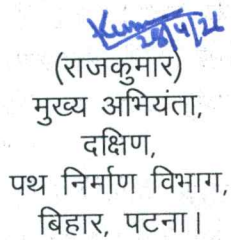 28/4/26
(राजकुमार)
मुख्य अभियंता,
दक्षिण,
पथ निर्माण विभाग,
बिहार, पटना।